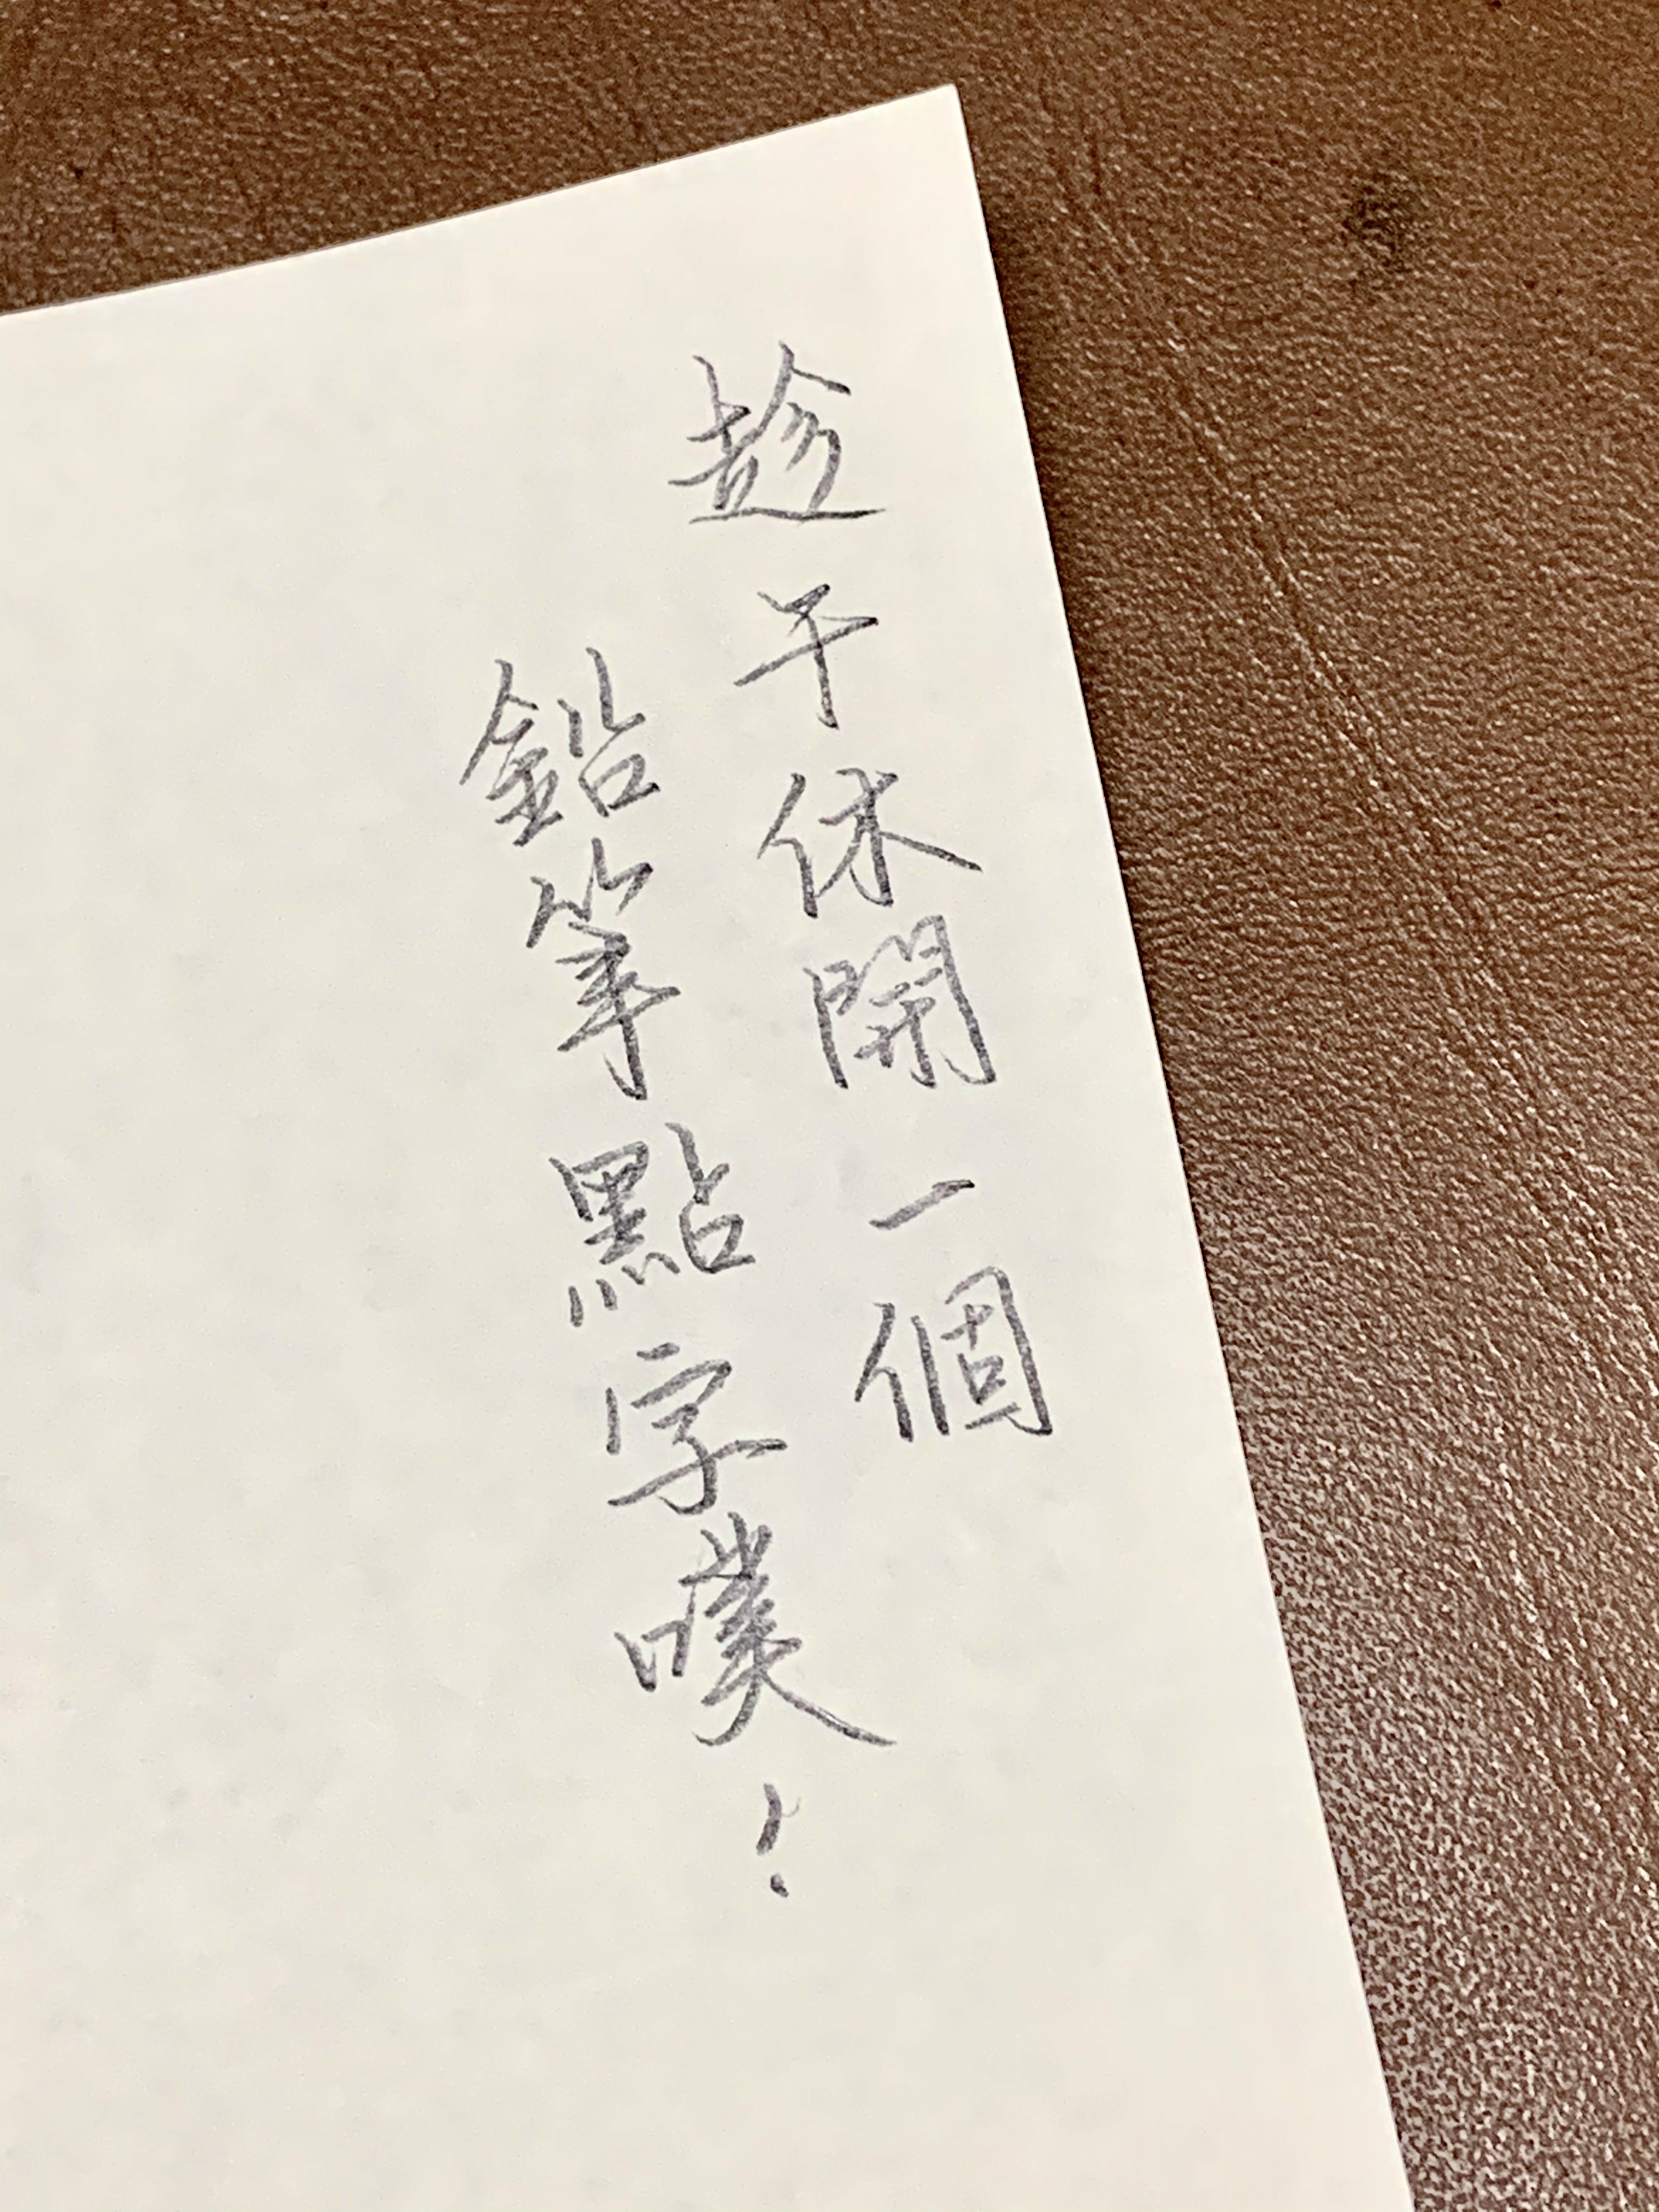 趁午休開一個
鉛筆點字噗!